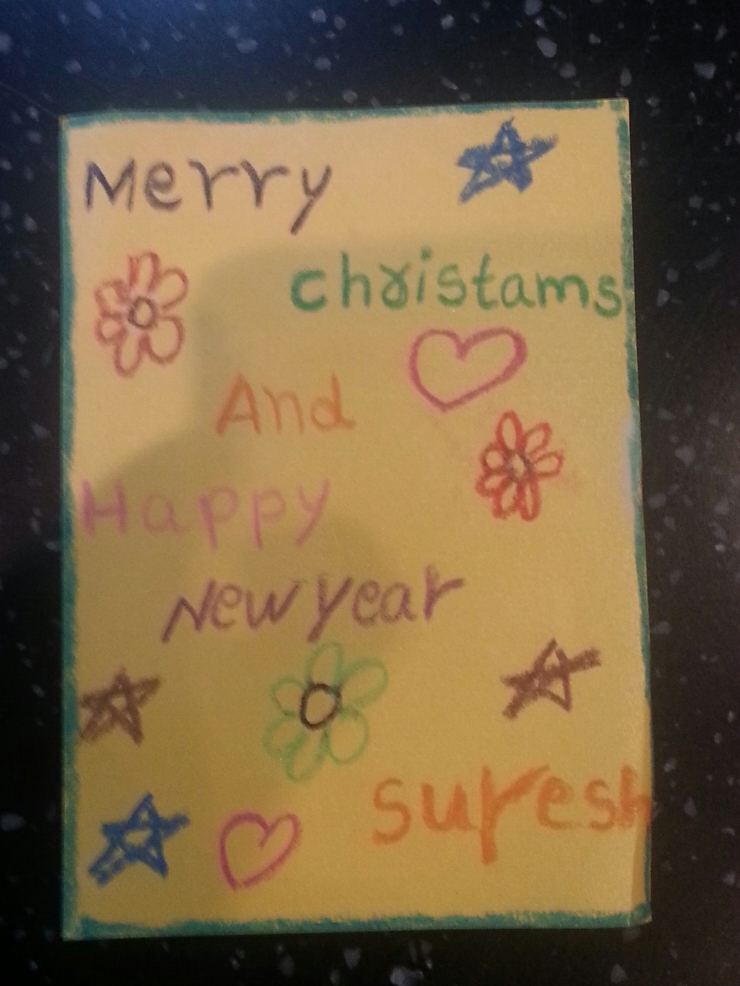 Merry
christams
And
Happy
New year
suresh